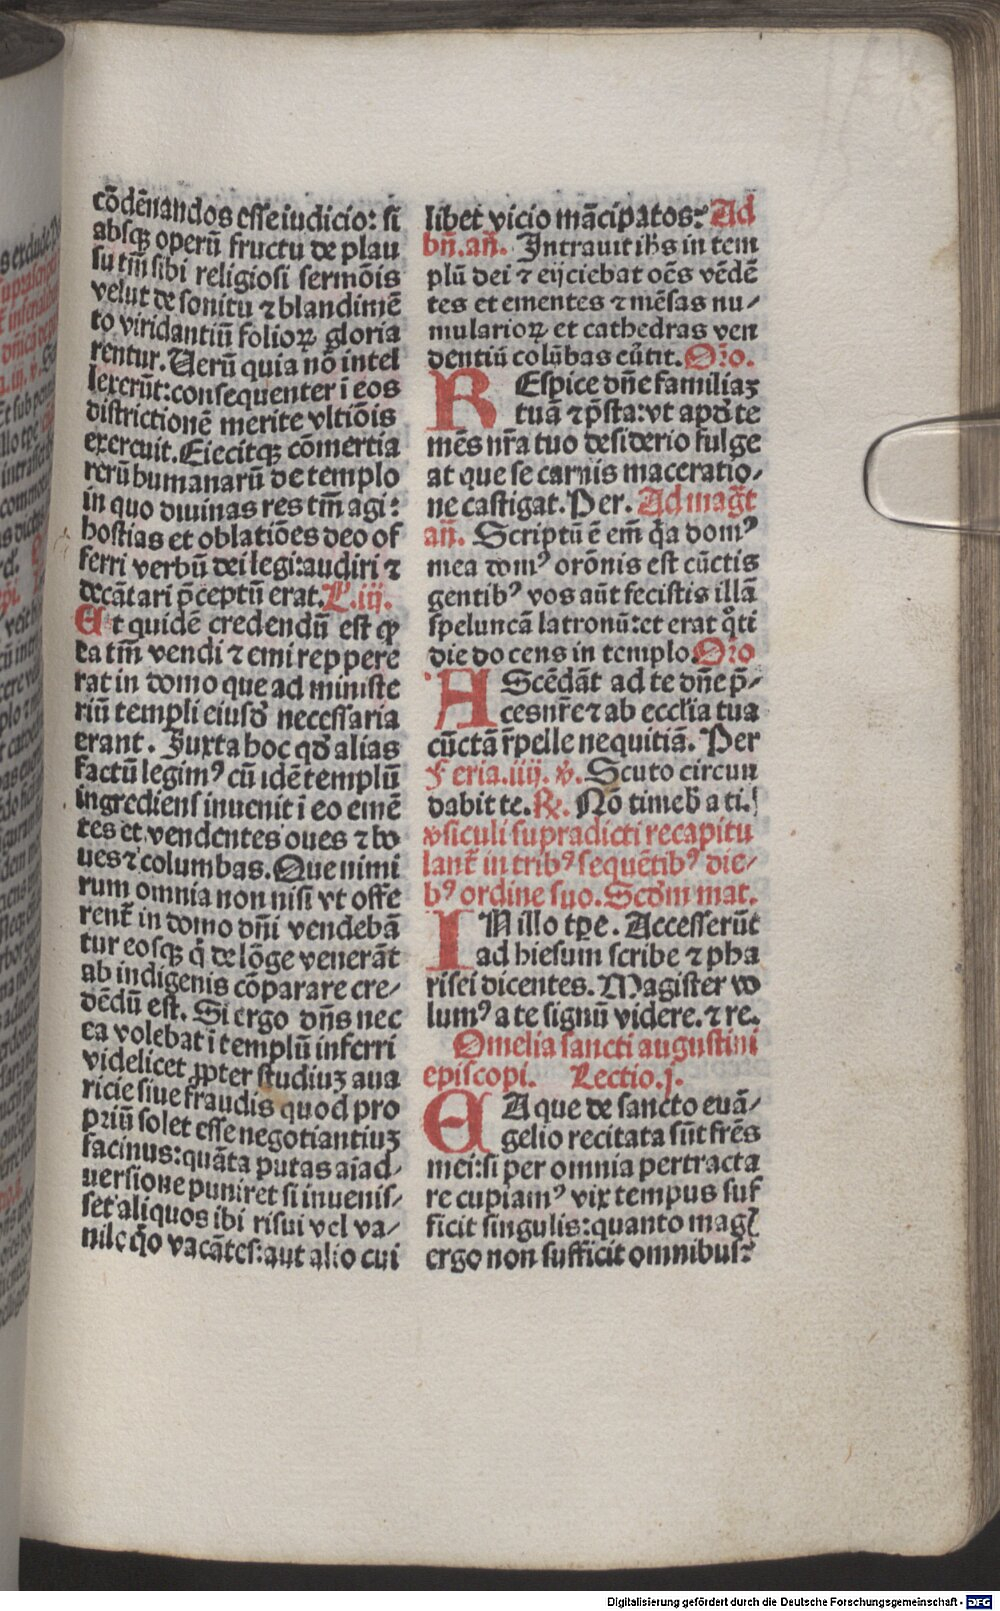 cōdēnandos esse iudicio: si
absqꝫ operū fructu de plau
su tm̄ sibi religiosi sermōis
velut de sonitu ⁊ blandimē
to viridantiū folioꝝ gloria
rentur. Uerū quia nō intel
lexerūt: consequenter ī eos
districtionē merite vltiōis
exercuit. Eiecitqꝫ cōmertia
rerū humanarū de templo
in quo diuinas res tm̄ agi:
hostias et oblatiōes deo of
ferri verbū dei legi: audiri ⁊
decātari p̄ceptū erat. L. iij.
Et quidē credendū est ꝙ
ea tm̄ vendi ⁊ emi reppere
rat in domo que ad ministe
riū templi eiusđ necessaria
erant. Juxta hoc qđ alias
factū legimꝰ cū idē templū
ingrediens inuenit ī eo emē
tes et vendentes oues ⁊ bo
ues ⁊ columbas. Que nimi
rum omnia non nisi vt offe
renť in domo dn̄i vendebā
tur eosqꝫ q̄ de lōge venerāt
ab indigenis cōparare cre⸗
dēdū est. Si ergo dn̄s nec
ea volebat ī templū inferri
videlicet ꝓpter studiuꝫ aua
ricie siue fraudis quod pro
priū solet esse negotiantiuꝫ
facinus: quāta putas aīad⸗
uersione puniret si inuenis⸗
set aliquos ibi risui vel va⸗
nilo qͦo vacātes: aut alio cui
libet vicio mācipatos? Ad
bn̄. an̄. Intrauit ih̄s in tem
plū dei ⁊ eijciebat oēs vēdē
tes et ementes ⁊ mēsas nu⸗
mularioꝝ et cathedras ven
dentiū colūbas eūtit. Oro.
REspice dn̄e familiaꝫ
tuā ⁊ p̄sta: vt apđ te
mēs nr̄a tuo desiderio fulge
at que se carnis maceratio⸗
ne castigat. Per. Ad magt̄
an̄. Scriptū ē em̄ qa domꝰ
mea domꝰ orōnis est cūctis
gentibꝰ vos aūt fecistis illā
speluncā latronū: et erat qͦti
die docens in templo. Oro
AScēdāt ad te dn̄e p̄⸗
ces nr̄e ⁊ ab ecclīa tua
cūctā r̄pelle nequitiā. Per
Feria. iiij. ꝟ. Scuto circun
dabit te. ℞. Nō timeb̄ a ti.
ꝟsiculi supradicti recapitu
lanť in tribꝰ sequētibꝰ die⸗
bꝰ ordine suo. Scđm mat.
IN illo tp̄e. Accesserūt
ad hiesum scribe ⁊ pha
risei dicentes. Magister vo
lumꝰ a te signū videre. ⁊ re.
Omelia sancti augustini
episcopi. Lectio. j.
EA que de sancto euā⸗
gelio recitata sūt fr̄es
mei: si per omnia pertracta
re cupiamꝰ vix tempus suf
ficit singulis: quanto magꝭ
ergo non sufficit omnibus?
Digitalisierung gefördert durch die Deutsche Forschungsgemeinschaft - DFG